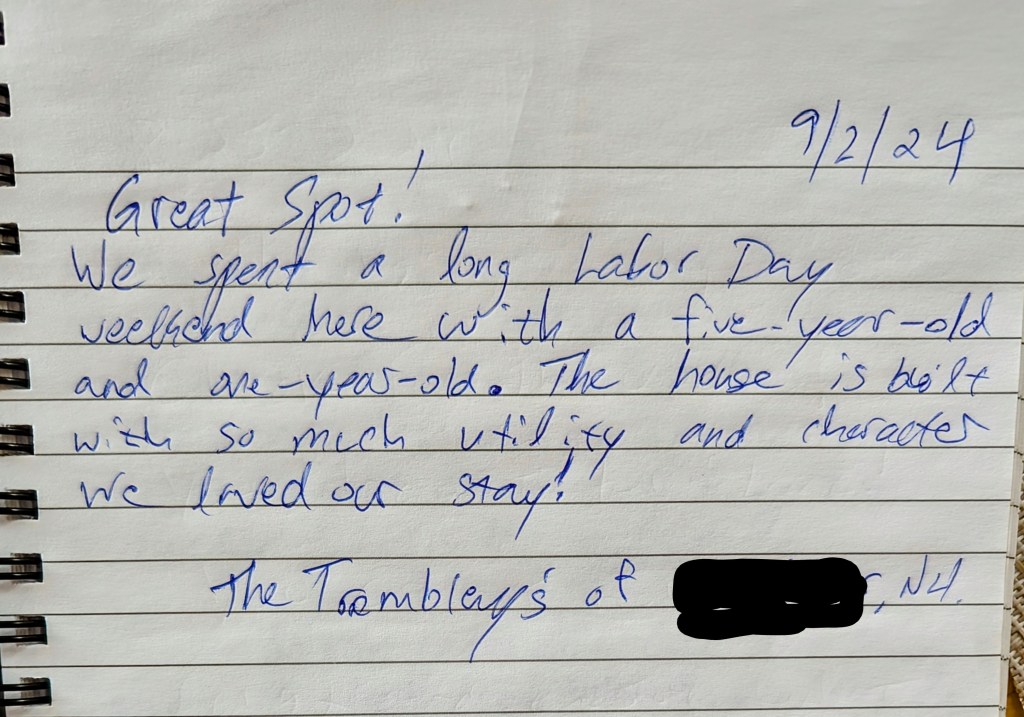 9/2/24
Great Spot!
We spent a long Labor Day
weekend here with a five-year-old
and one-year-old. The house is built
with so much utility and character
we loved our stay!
The Tremblay's of , NH.